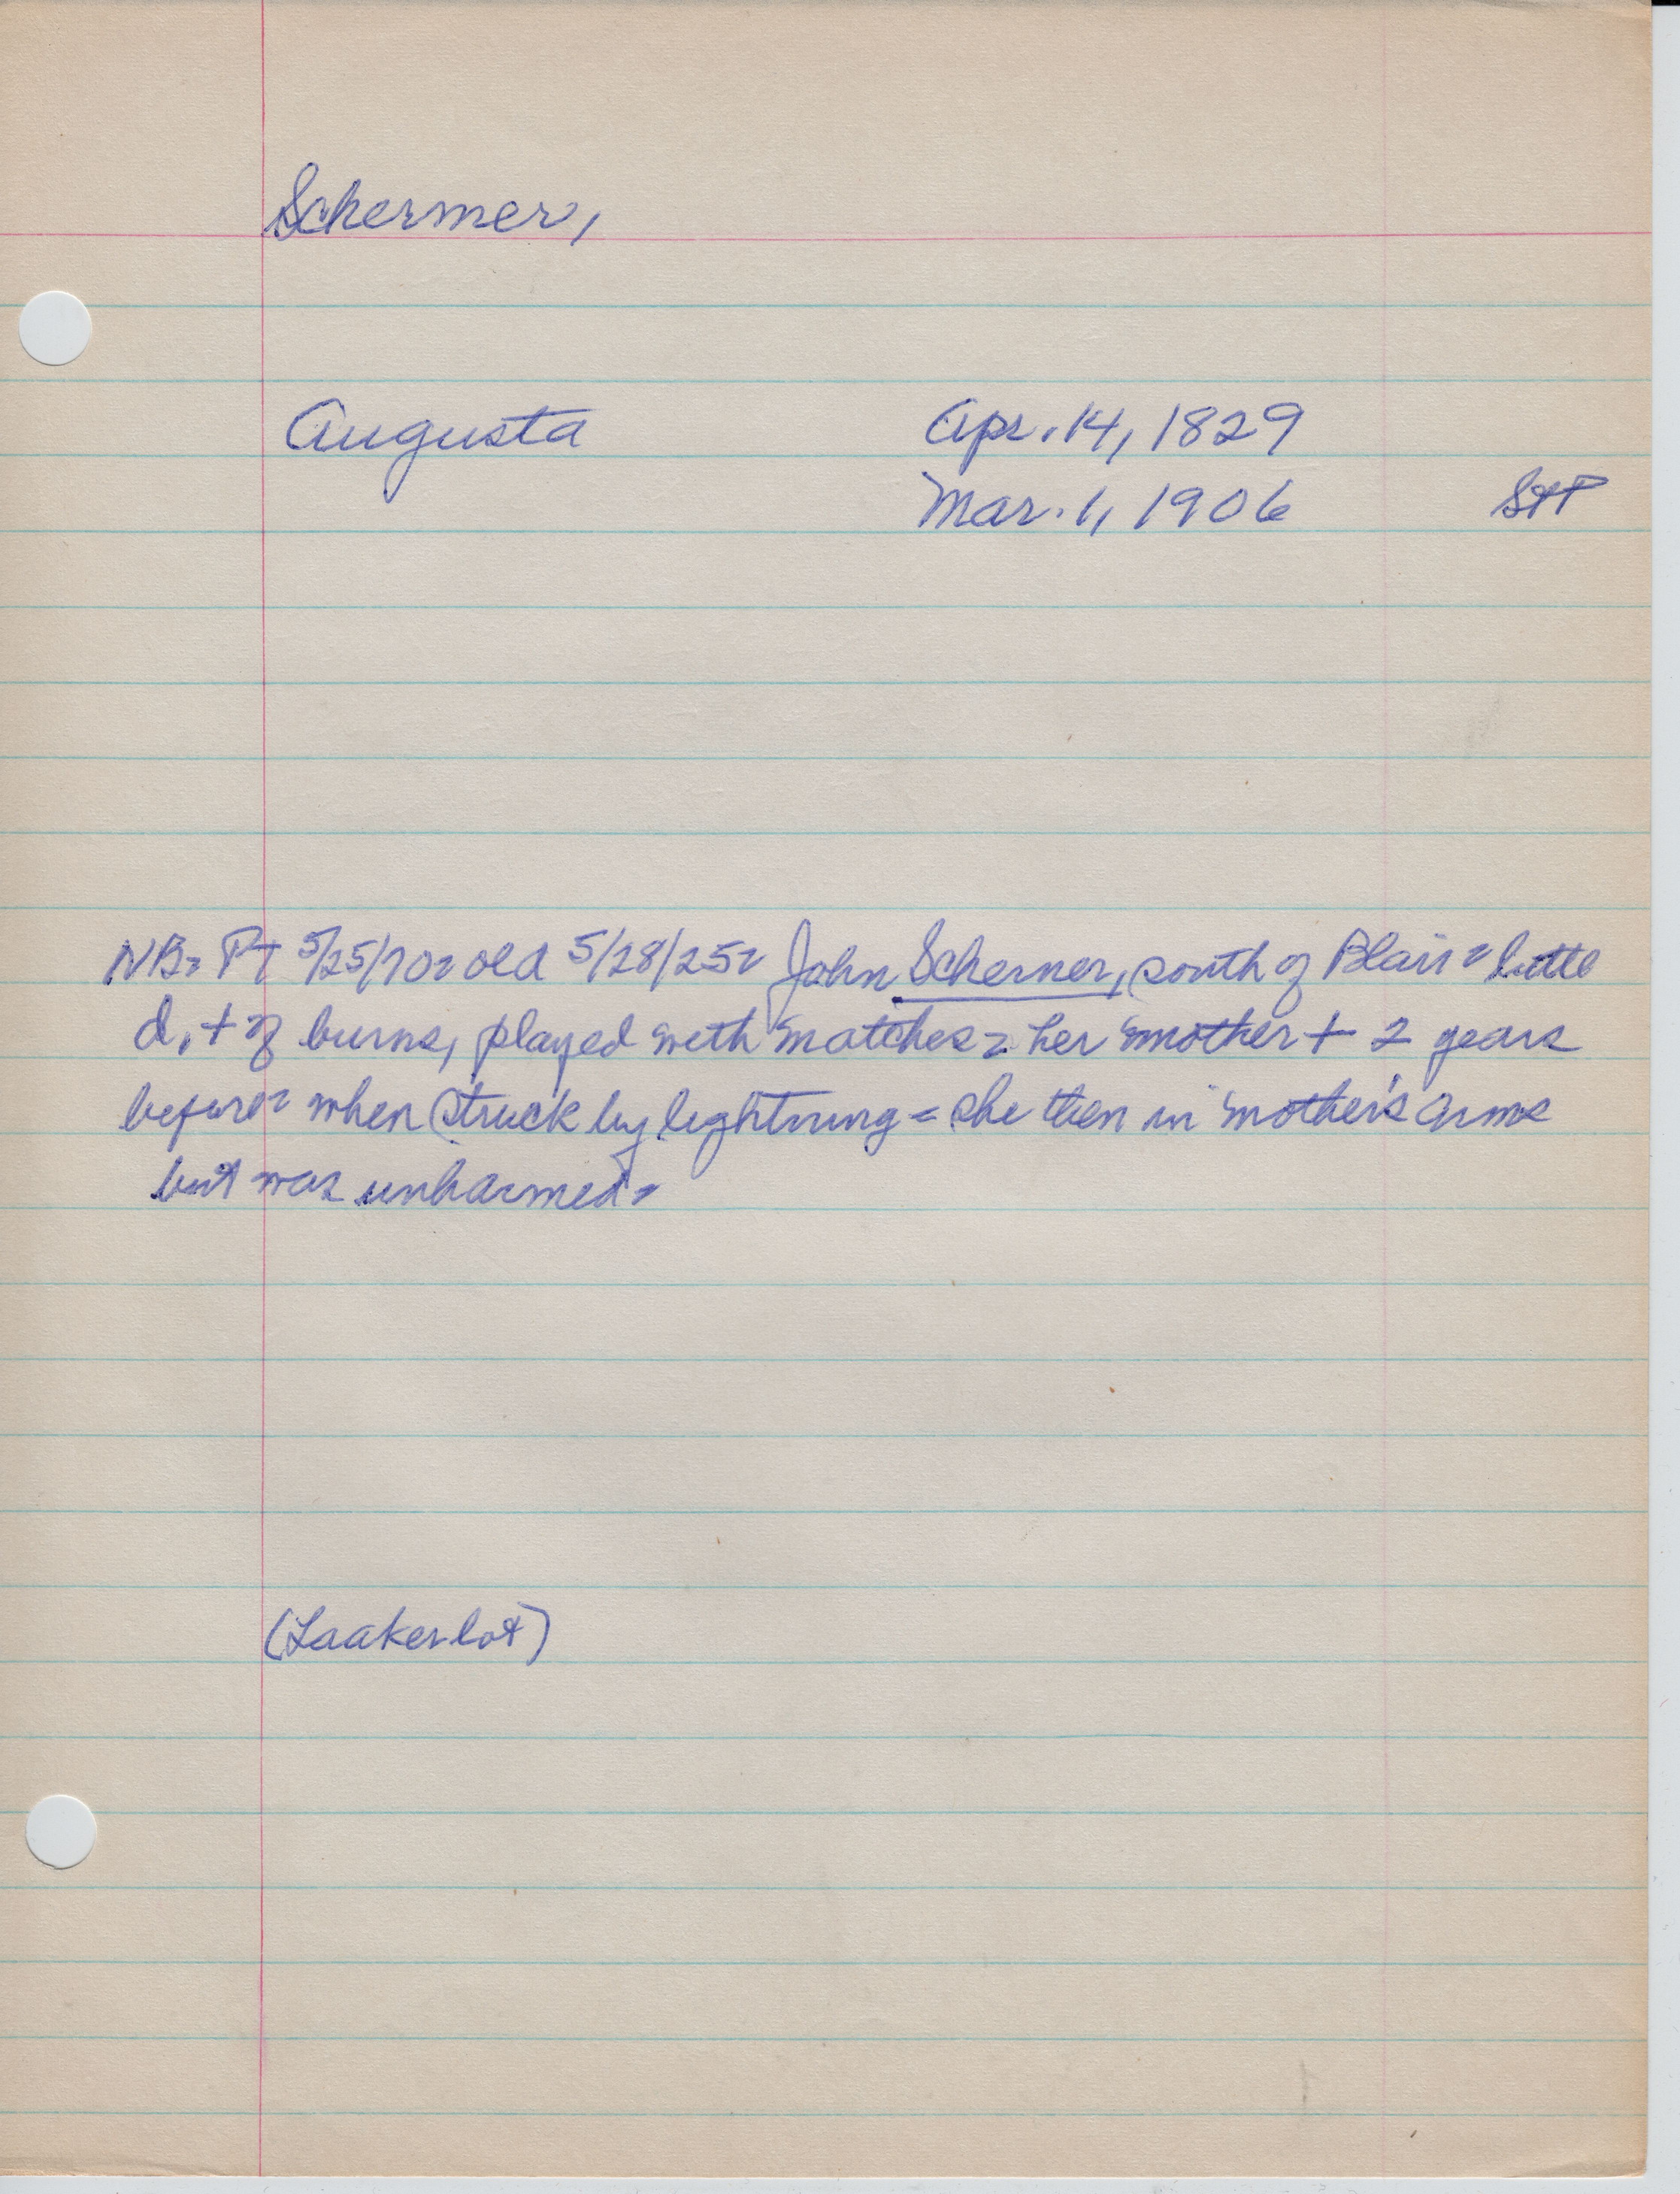 Schermer,
Augusta Apr. 14, 1829
Mar. 1, 1906 StP
NB= PT 5/25/70= old 5/28/25= John Schermer, south of Blair= little
d, + of burns, played with matches= her mother + 2 years
before= when struck by lightning= she then in mother's arms
but was unharmed=
(Laaker lot)